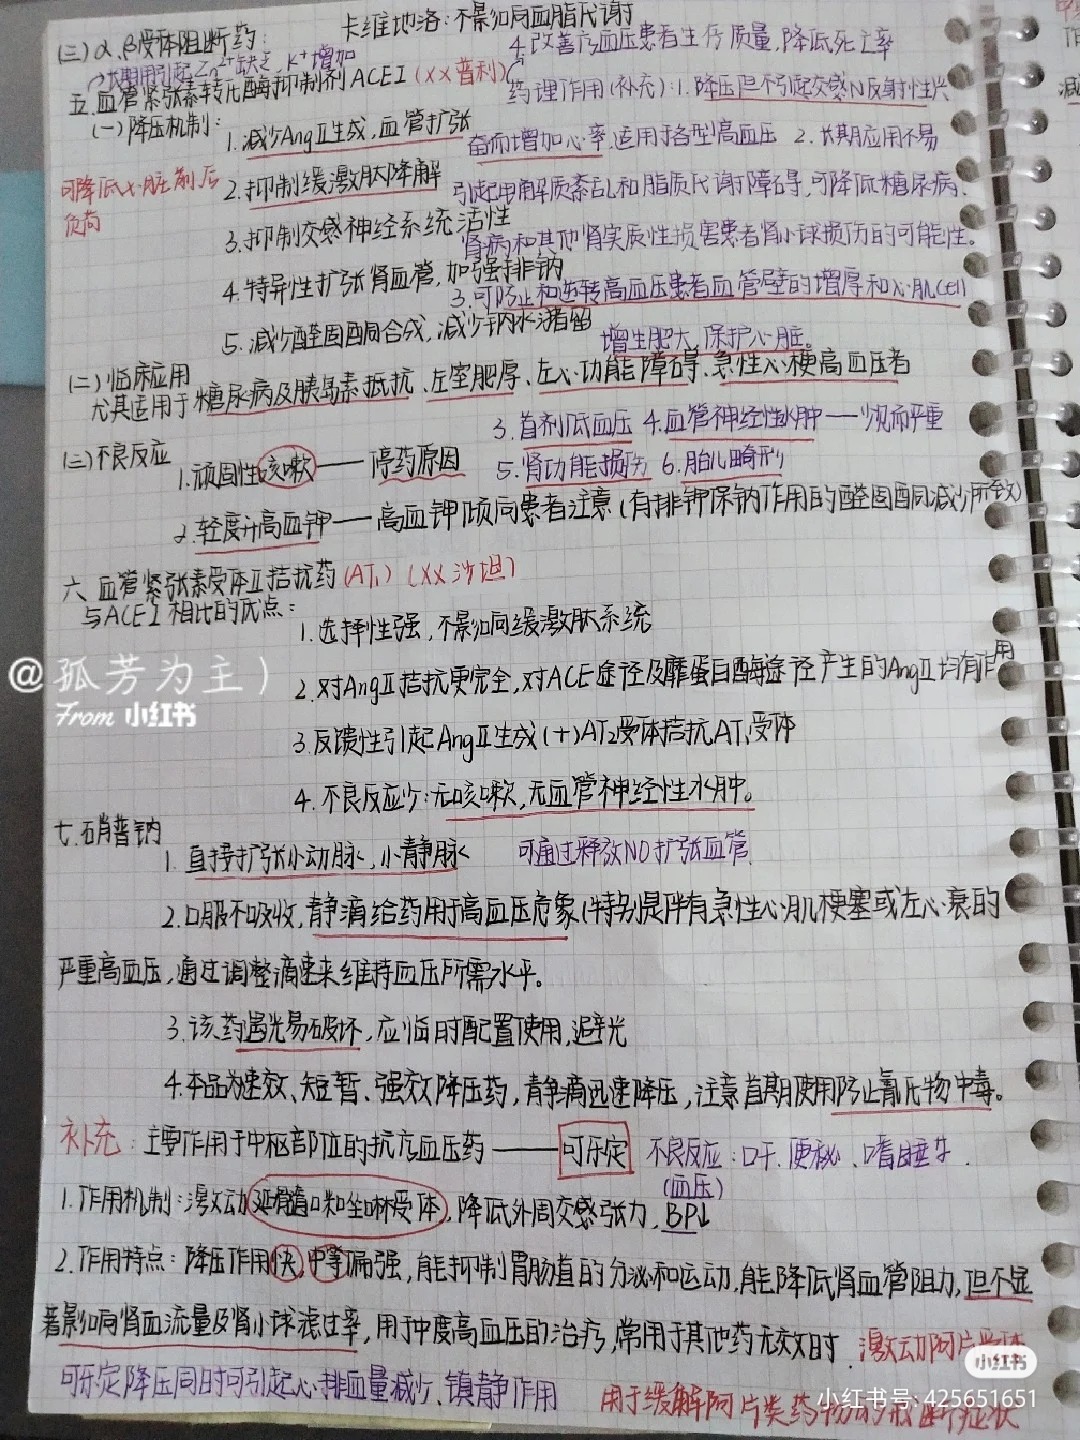 (三)α、β受体阻断药: 卡维地洛:不影响血脂代谢
4.改善高血压患者生存质量,降低死亡率
→长期用引起Zn²⁺缺乏、K⁺增加
五.血管紧张素转化酶抑制剂ACEI(XX普利)
药理作用(补充):1.降压但不引起交感N反射性兴
(一)降压机制:
1.减少AngⅡ生成,血管扩张
奋而增加心率,适用于各型高血压 2.长期应用不易
可降低心脏前后
负荷
2.抑制缓激肽降解
引起电解质紊乱和脂质代谢障碍,可降低糖尿病、
3.抑制交感神经系统活性
肾病和其他肾实质性损害患者肾小球损伤的可能性。
4.特异性扩张肾血管,加强排钠
3.可防止和逆转高血压患者血管壁的增厚和心肌cell
5.减少醛固酮合成,减少钠水潴留
增生肥大,保护心脏。
(二)临床应用
尤其适用于糖尿病及胰岛素抵抗、左室肥厚、左心功能障碍、急性心梗高血压者
3.首剂低血压 4.血管神经性水肿——少见而严重
(三)不良反应
1.顽固性咳嗽——停药原因
5.肾功能损伤 6.胎儿畸形
2.轻度升高血钾——高血钾倾向患者注意(有排钾保钠作用的醛固酮减少所致)
六.血管紧张素受体Ⅱ拮抗药(AT₁)(XX沙坦)
与ACEI相比的优点:
1.选择性强,不影响缓激肽系统
2.对AngⅡ拮抗更完全,对ACE途径及糜蛋白酶途径产生的AngⅡ均有作用
3.反馈性引起AngⅡ生成(+)AT₂受体拮抗AT₁受体
4.不良反应少:无咳嗽,无血管神经性水肿。
@孤芳为主)
From 小红书
七.硝普钠
1.直接扩张小动脉,小静脉 可通过释放NO扩张血管
2.口服不吸收,静滴给药用于高血压危象(特别是伴有急性心肌梗塞或左心衰的
严重高血压,通过调整滴速来维持血压所需水平。
3.该药遇光易破坏,应临时配置使用,避光
4.本品为速效、短暂、强效降压药,静滴迅速降压,注意首期使用防止氰化物中毒。
补充:主要作用于中枢部位的抗高血压药——可乐定 不良反应:口干、便秘、嗜睡等.
(血压)
1.作用机制:激动延髓咪唑啉受体,降低外周交感张力,BP↓
2.作用特点:降压作用快,中等偏强,能抑制胃肠道的分泌和运动,能降低肾血管阻力,但不显
著影响肾血流量及肾小球滤过率,用于中度高血压的治疗,常用于其他药无效时. 激动阿片受体
可乐定降压同时可引起心排血量减少、镇静作用 用于缓解阿片类药物的戒断症状
小红书
小红书号:425651651